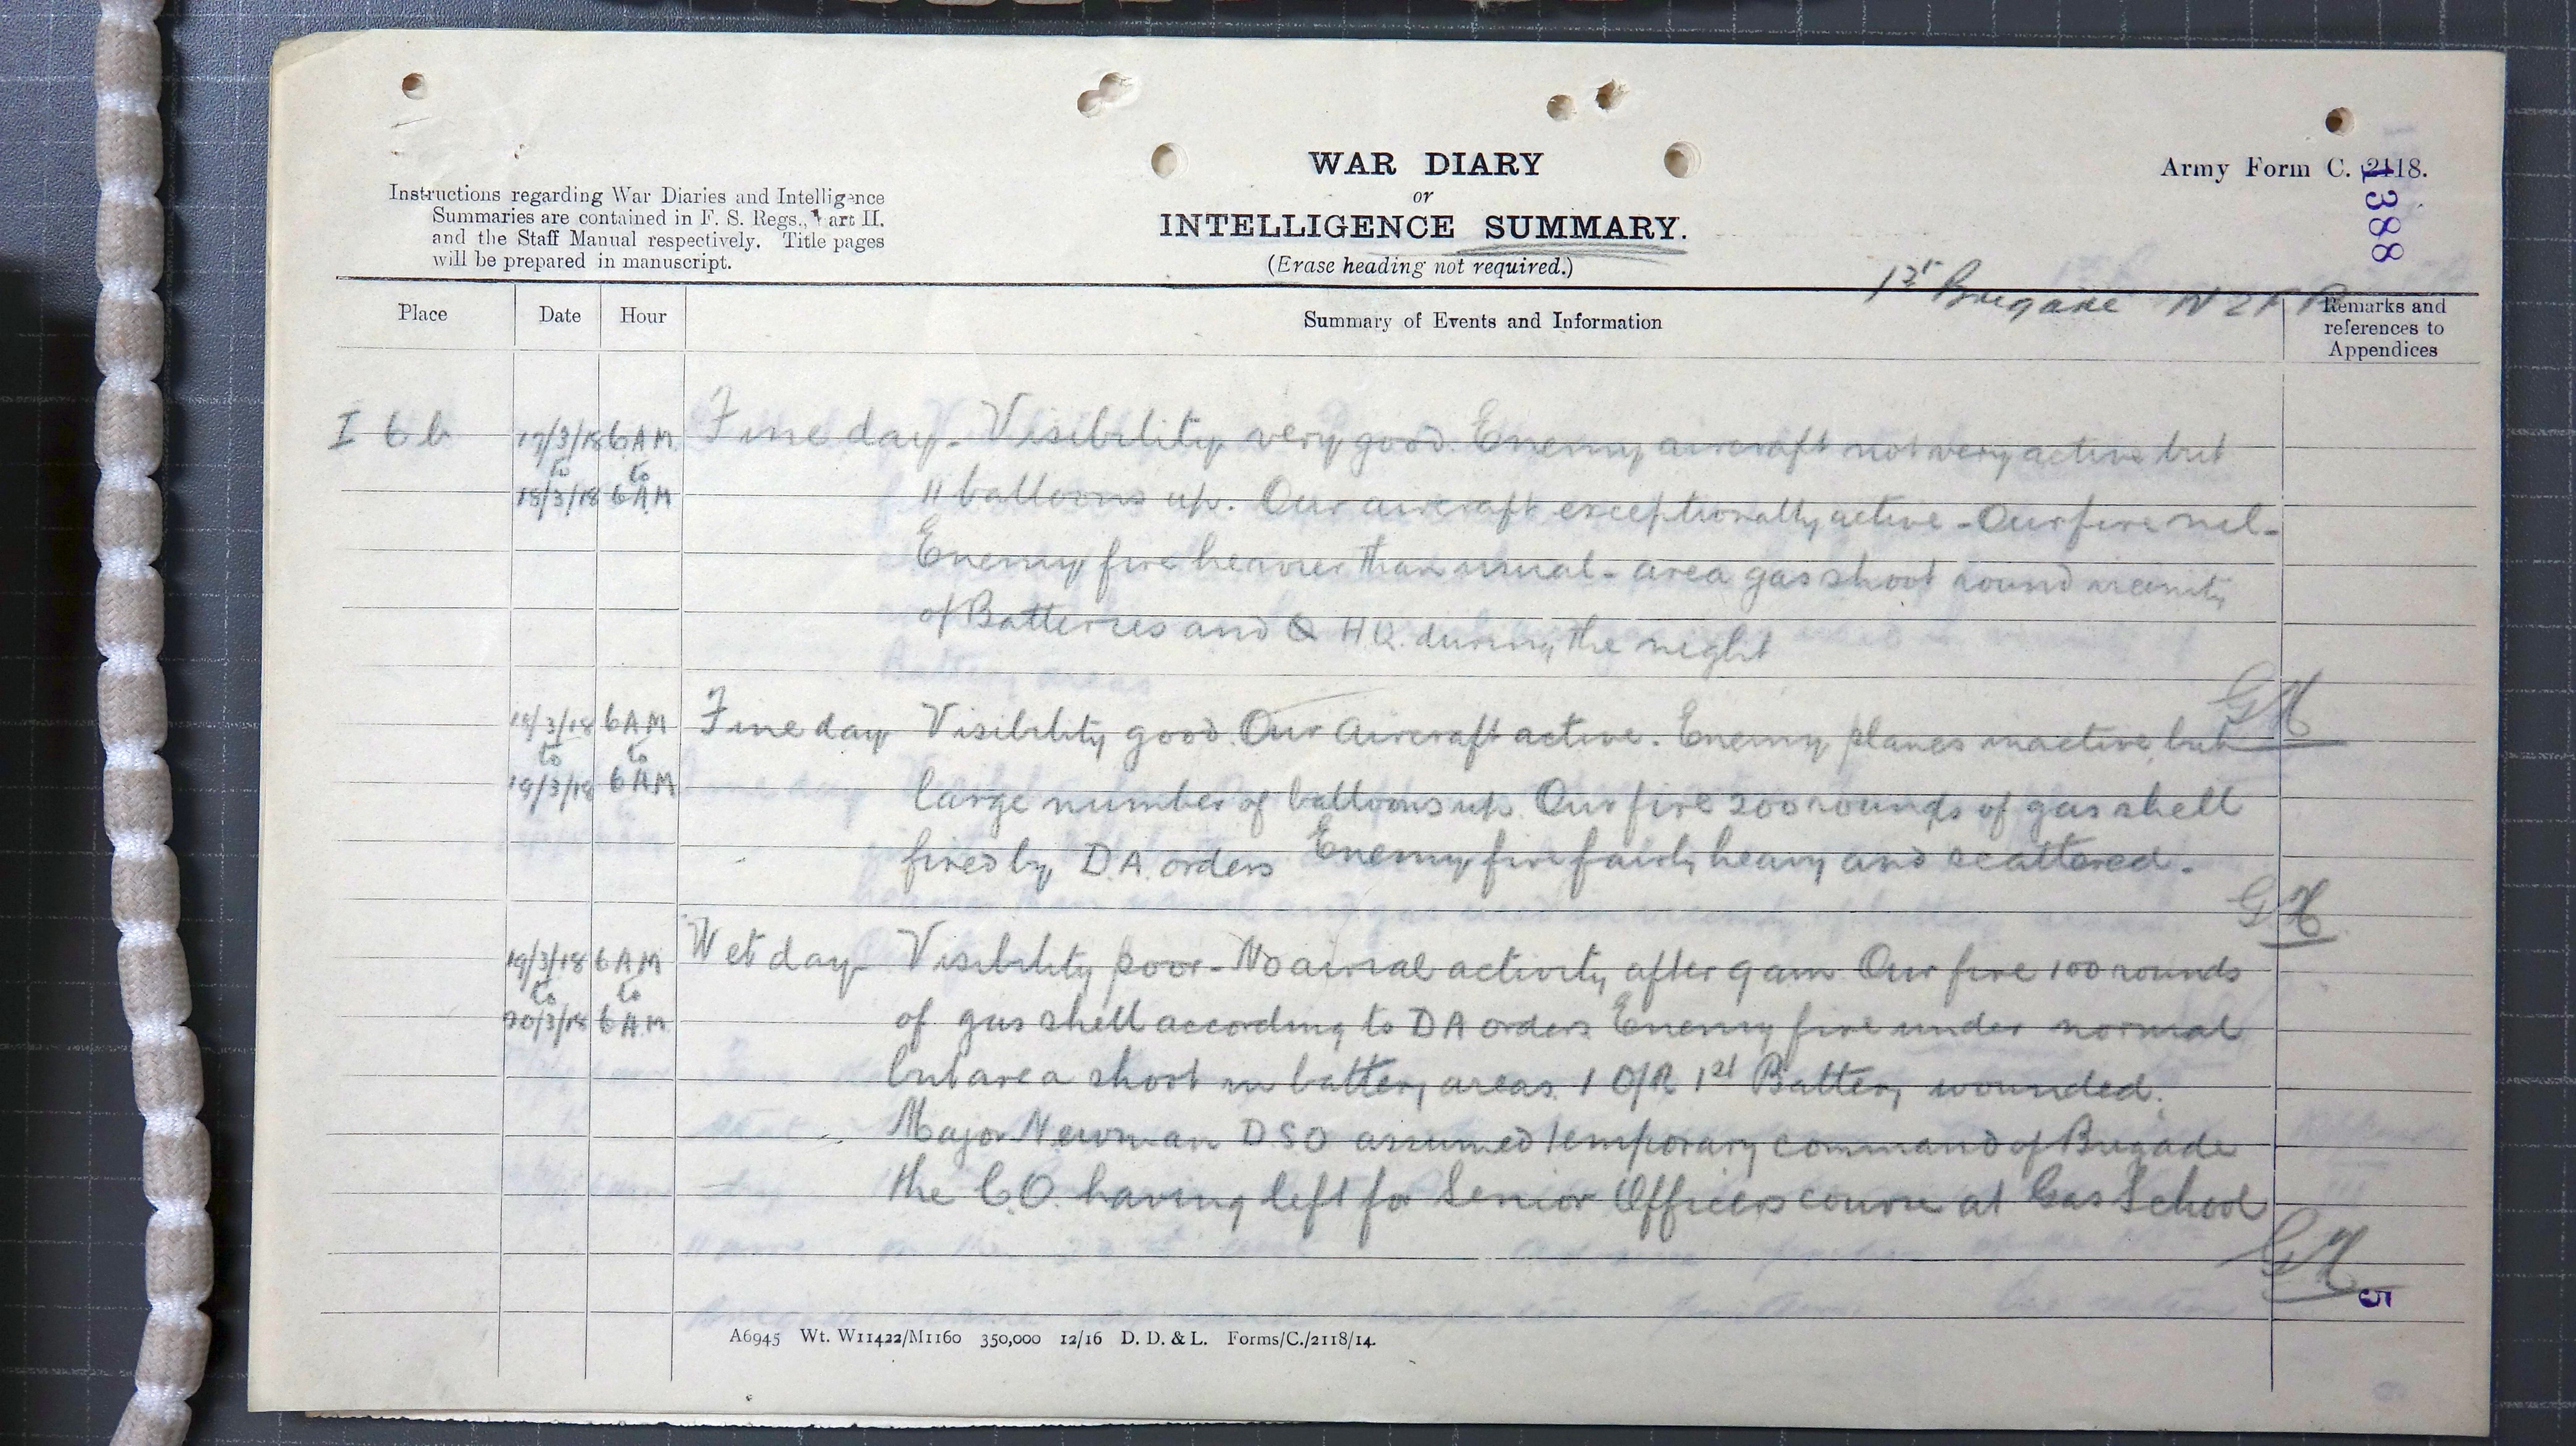 Instructions regarding War Diaries and Intelligence
Summaries are contained in F. S. Regs., Part II.
and the Staff Manual respectively. Title pages
will be prepared in manuscript.
WAR DIARY
or
INTELLIGENCE SUMMARY.
(Erase heading not required.)
Army Form C. 2118.
1388
1st Brigade NZFA
Place
Date
Hour
Summary of Events and Information
Remarks and
references to
Appendices
I 6 b 17/3/18 6AM Fine day - Visibility very good. Enemy aircraft not very active but
to to
18/3/18 6AM 11 balloons up. Our aircraft exceptionally active - Our fire nil -
Enemy fire heavier than usual - area gas shoot round vicinity
of Batteries and HQ. during the night
GH
18/3/18 6AM Fine day Visibility good. Our Aircraft active. Enemy planes inactive, but
to to
19/3/18 6AM large number of balloons up. Our fire 200 rounds of gas shell
fired by D.A. orders Enemy fire fairly heavy and scattered -
GH
19/3/18 6AM Wet day - Visibility poor - No aerial activity after 9 am Our fire 100 rounds
to to
20/3/18 6AM of gas shell according to DA orders Enemy fire under normal
but area shoot in battery areas. 1 O/R 1st Battery wounded.
Major Newman DSO assumed temporary command of Brigade
the C.O. having left for Senior Officers course at Gas School
GH
5
A6945 Wt. W11422/M1160 350,000 12/16 D. D. & L. Forms/C./2118/14.